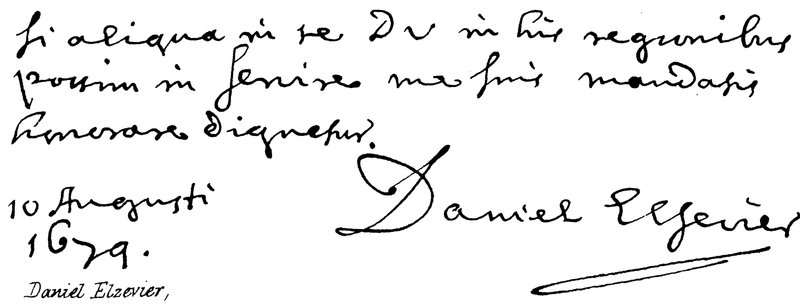 si aliqua in re Dv in his regionibus
possim in servire me suis mandatis
honorare dignetur.
10 Augusti
1679.
Daniel Elsevier
Daniel Elzevier,